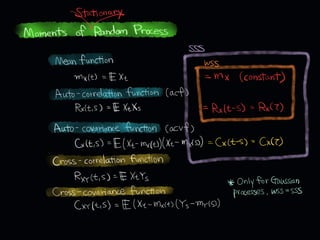 Stationary
Moments of Random Process
SSS
WSS
Mean function
mx(t) = 𝔼 Xt
= mx (constant)
Auto-correlation function (acf)
Rx(t,s) = 𝔼 Xt Xs
= Rx(t-s) = Rx(τ)
Auto-covariance function (acvf)
Cx(t,s) = 𝔼 (Xt - mx(t)) (Xs - mx(s))
= Cx(t-s) = Cx(τ)
Cross-correlation function
RXY(t,s) = 𝔼 Xt Ys
Cross-covariance function
CXY(t,s) = 𝔼 (Xt - mx(t)) (Ys - mY(s))
* Only for Gaussian
processes, WSS = SSS